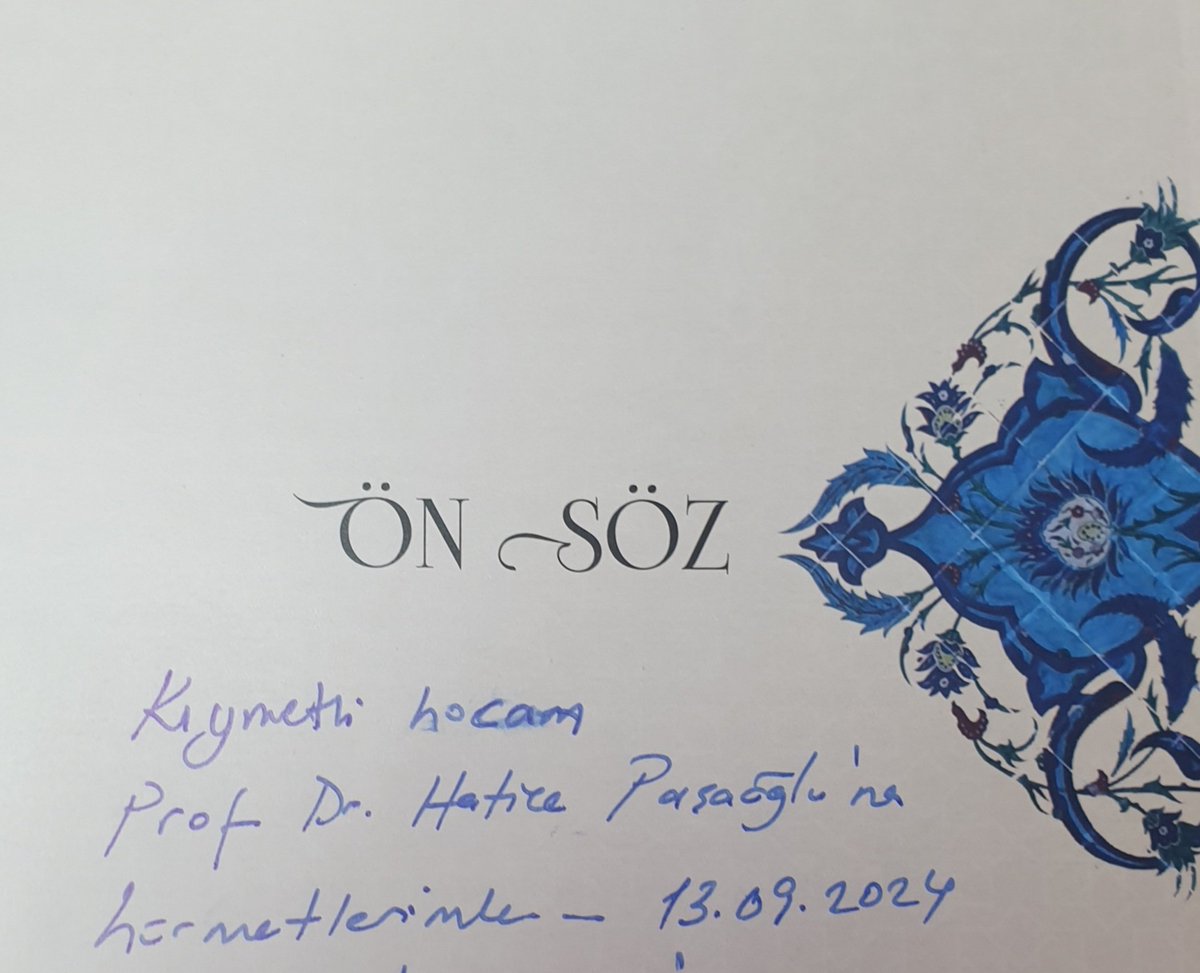 ÖN SÖZ
Kıymetli hocam
Prof Dr. Hatice Paşaoğlu'na
hürmetlerimle – 13.09.2024